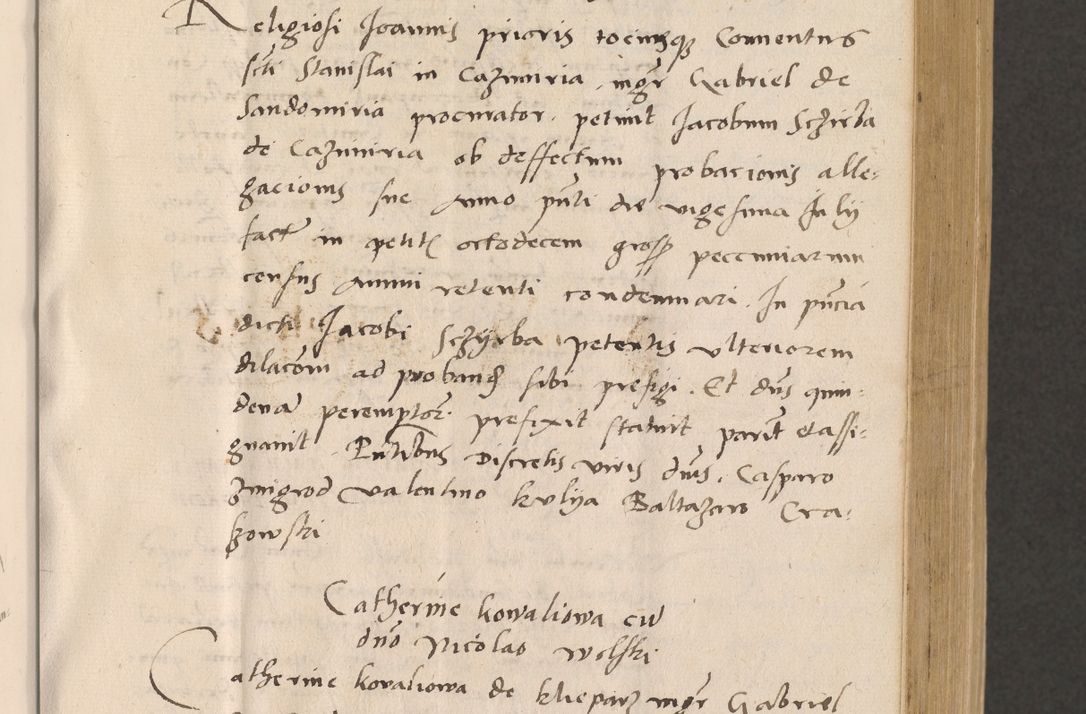 Religiosi Joannis prioris tociusq(ue) Conventus
scti Stanislai in Cazimiria mgr Gabriel de
Sandomiria procurator petiuit Jacobum Schirba
de Cazimiria ob deffectum probacionis alle-
gacionis sue Anno pnti die vigesima Julij
facte in petitis octodecem grossos pecuniarum
census Annui retenti condemnari. In pncia
dicti Jacobi Schyrba petentis vlteriorem
dilacom ad proband sibi prefigi. Et dns quin-
dena peremptor prefixit statuit pariter et assi-
gnauit. Pntibus discretis viris dnis Casparo
Zmigrod Valentino Kulya Baltazaro Cra-
kowski
Catherine Kowaliowa cu
dno Nicolao Wolski
Catherine Kovaliowa de Klieparz mgr Gabriel